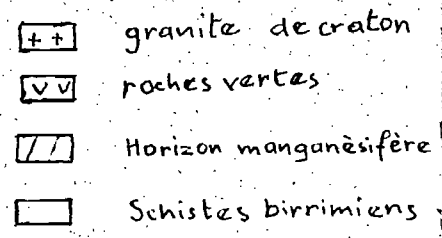 ++ granite de craton
VV roches vertes
// Horizon manganèsifère
Schistes birrimiens